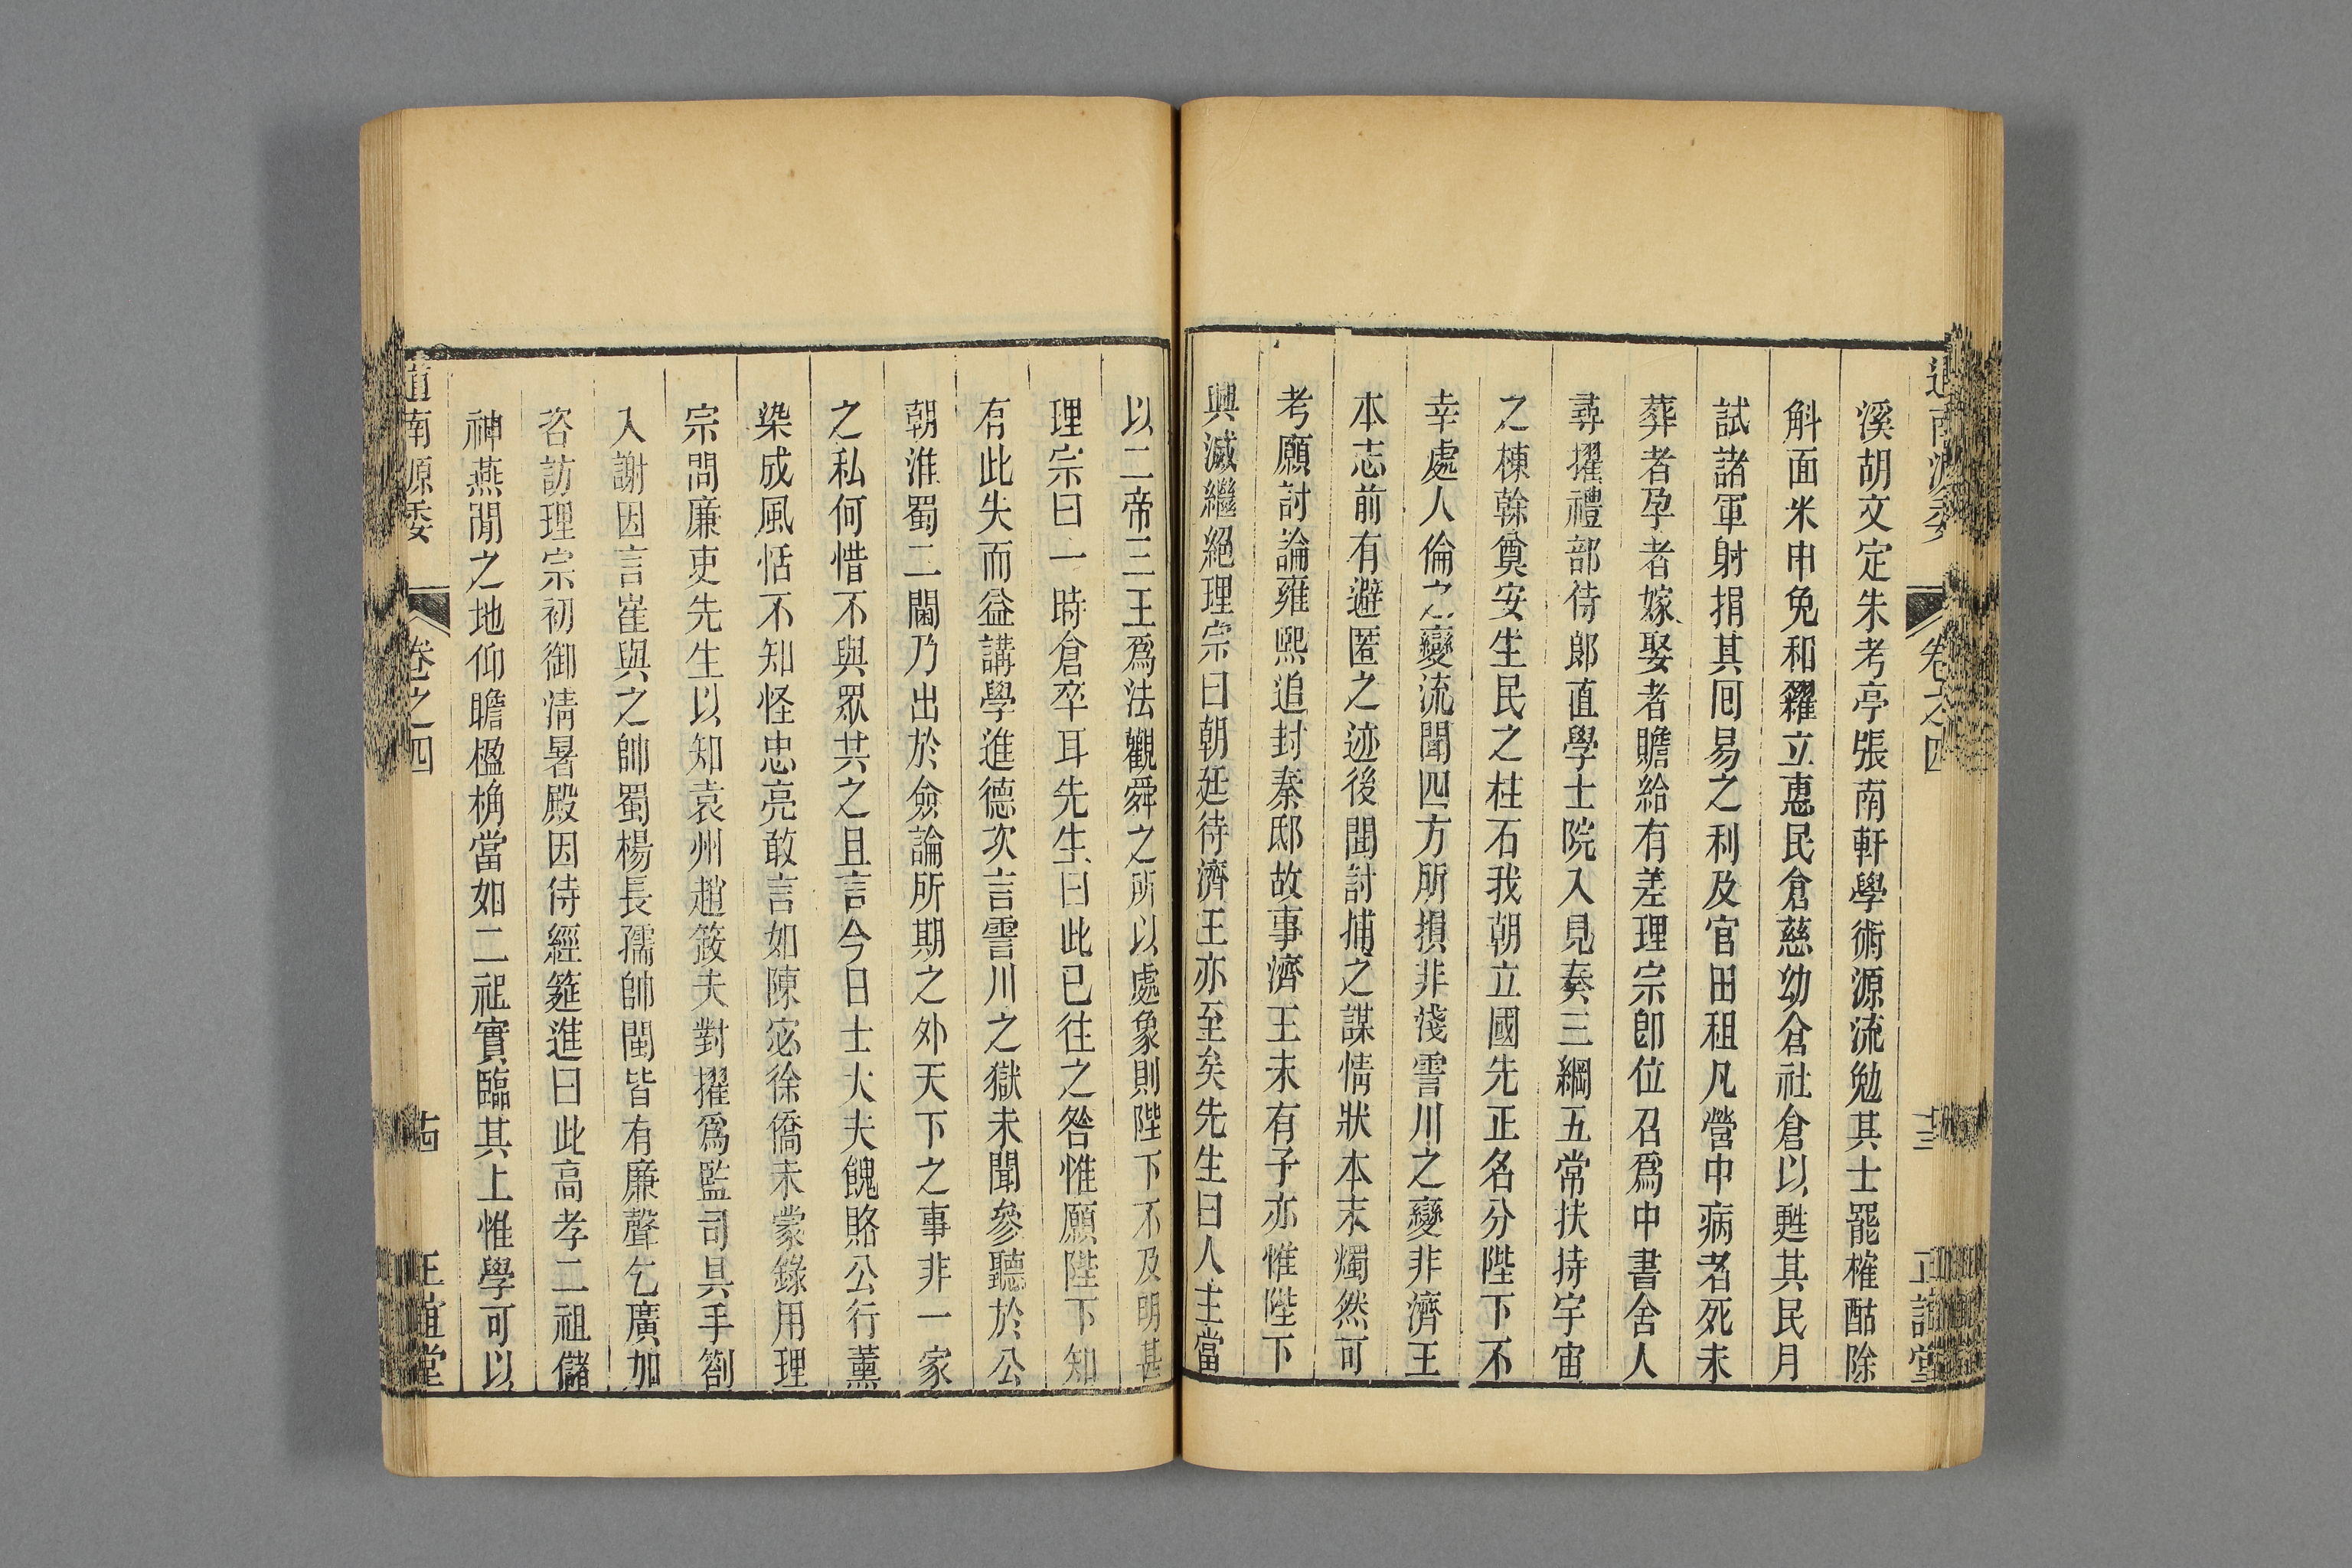 道南源委
卷之四
十三
正誼堂
溪胡文定朱考亭張南軒學術源流勉其士罷榷酤除
斛面米申免和糴立惠民倉慈幼倉社倉以甦其民月
試諸軍射捐其囘易之利及官田租凡營中病者死未
葬者孕者嫁娶者贍給有差理宗卽位召爲中書舍人
尋擢禮部侍郞直學士院入見奏三綱五常扶持宇宙
之棟榦奠安生民之柱石我朝立國先正名分陛下不
幸處人倫之變流聞四方所損非淺霅川之變非濟王
本志前有避匿之迹後聞討捕之謀情狀本末燭然可
考願討論雍熙追封秦邸故事濟王未有子亦惟陛下
興滅繼絕理宗曰朝廷待濟王亦至矣先生曰人主當
以二帝三王爲法觀舜之所以處象則陛下不及明甚
理宗曰一時倉卒耳先生曰此已往之咎惟願陛下知
有此失而益講學進德次言霅川之獄未聞參聽於公
朝淮蜀二閫乃出於僉論所期之外天下之事非一家
之私何惜不與眾共之且言今日士大夫餽賂公行薰
染成風恬不知怪忠亮敢言如陳宓徐僑未蒙錄用理
宗問廉吏先生以知袁州趙䈣夫對擢爲監司具手劄
入謝因言崔與之帥蜀楊長孺帥閩皆有廉聲乞廣加
咨訪理宗初御淸暑殿因侍經筵進曰此高孝二祖儲
神燕閒之地仰瞻楹桷當如二祖實臨其上惟學可以
道南源委
卷之四
十四
正誼堂